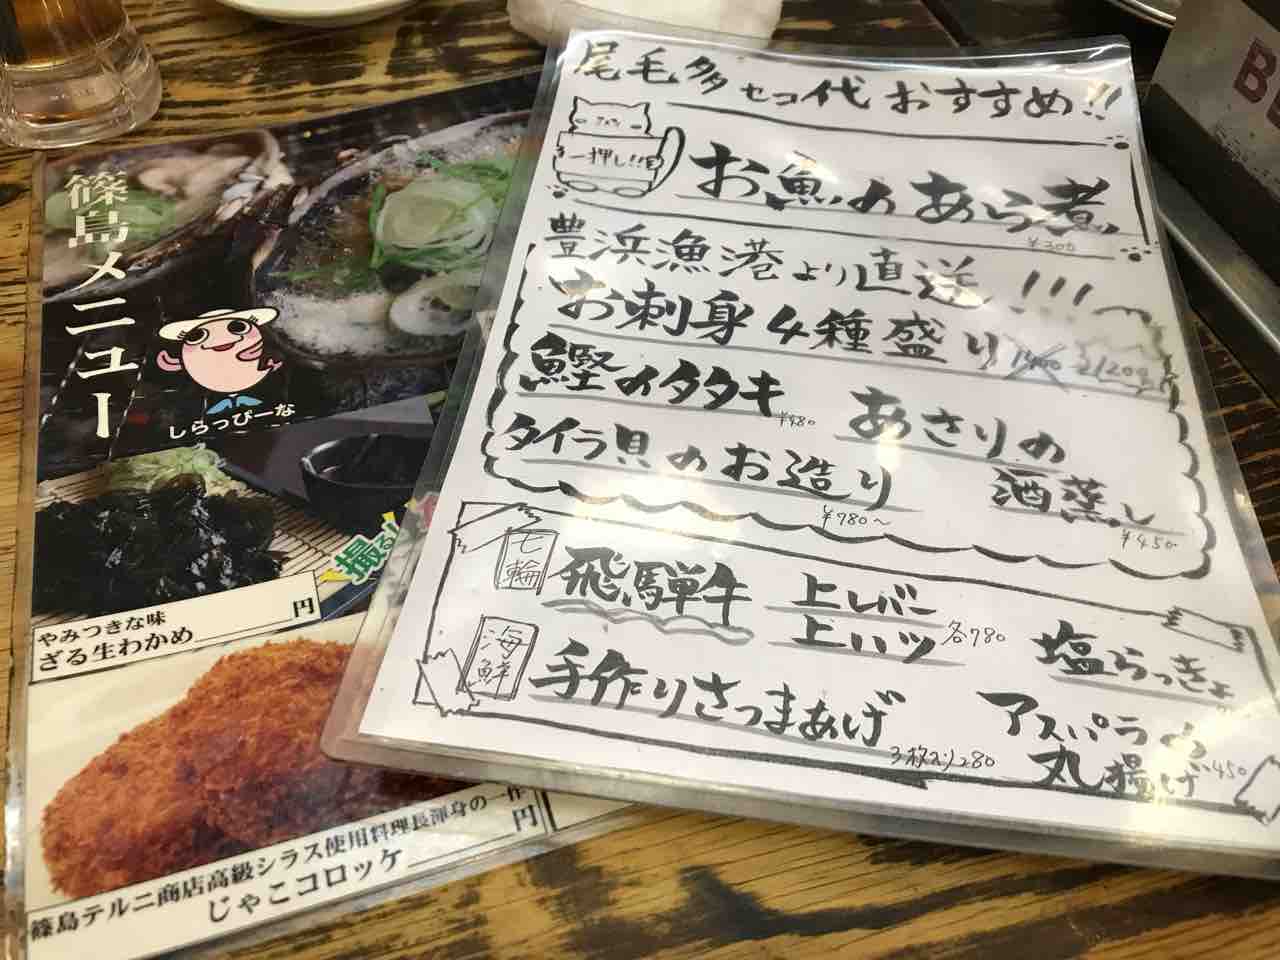 尾毛多セコ代おすすめ!!
一押し!!
お魚のあら煮
¥300
豊浜漁港より直送!!!
お刺身4種盛り
鰹のタタキ
¥480
あさりの
酒蒸し
¥450
タイラ貝のお造り
¥780~
七輪
飛騨牛
上レバー
上ハツ
各780
塩らっきょ
海鮮
手作りさつまあげ
3枚入り280
アスパラの
丸揚げ
450
篠島メニュー
しらっぴーな
やみつきな味
ざる生わかめ 円
篠島テルニ商店高級シラス使用料理長渾身の一作
じゃこコロッケ 円